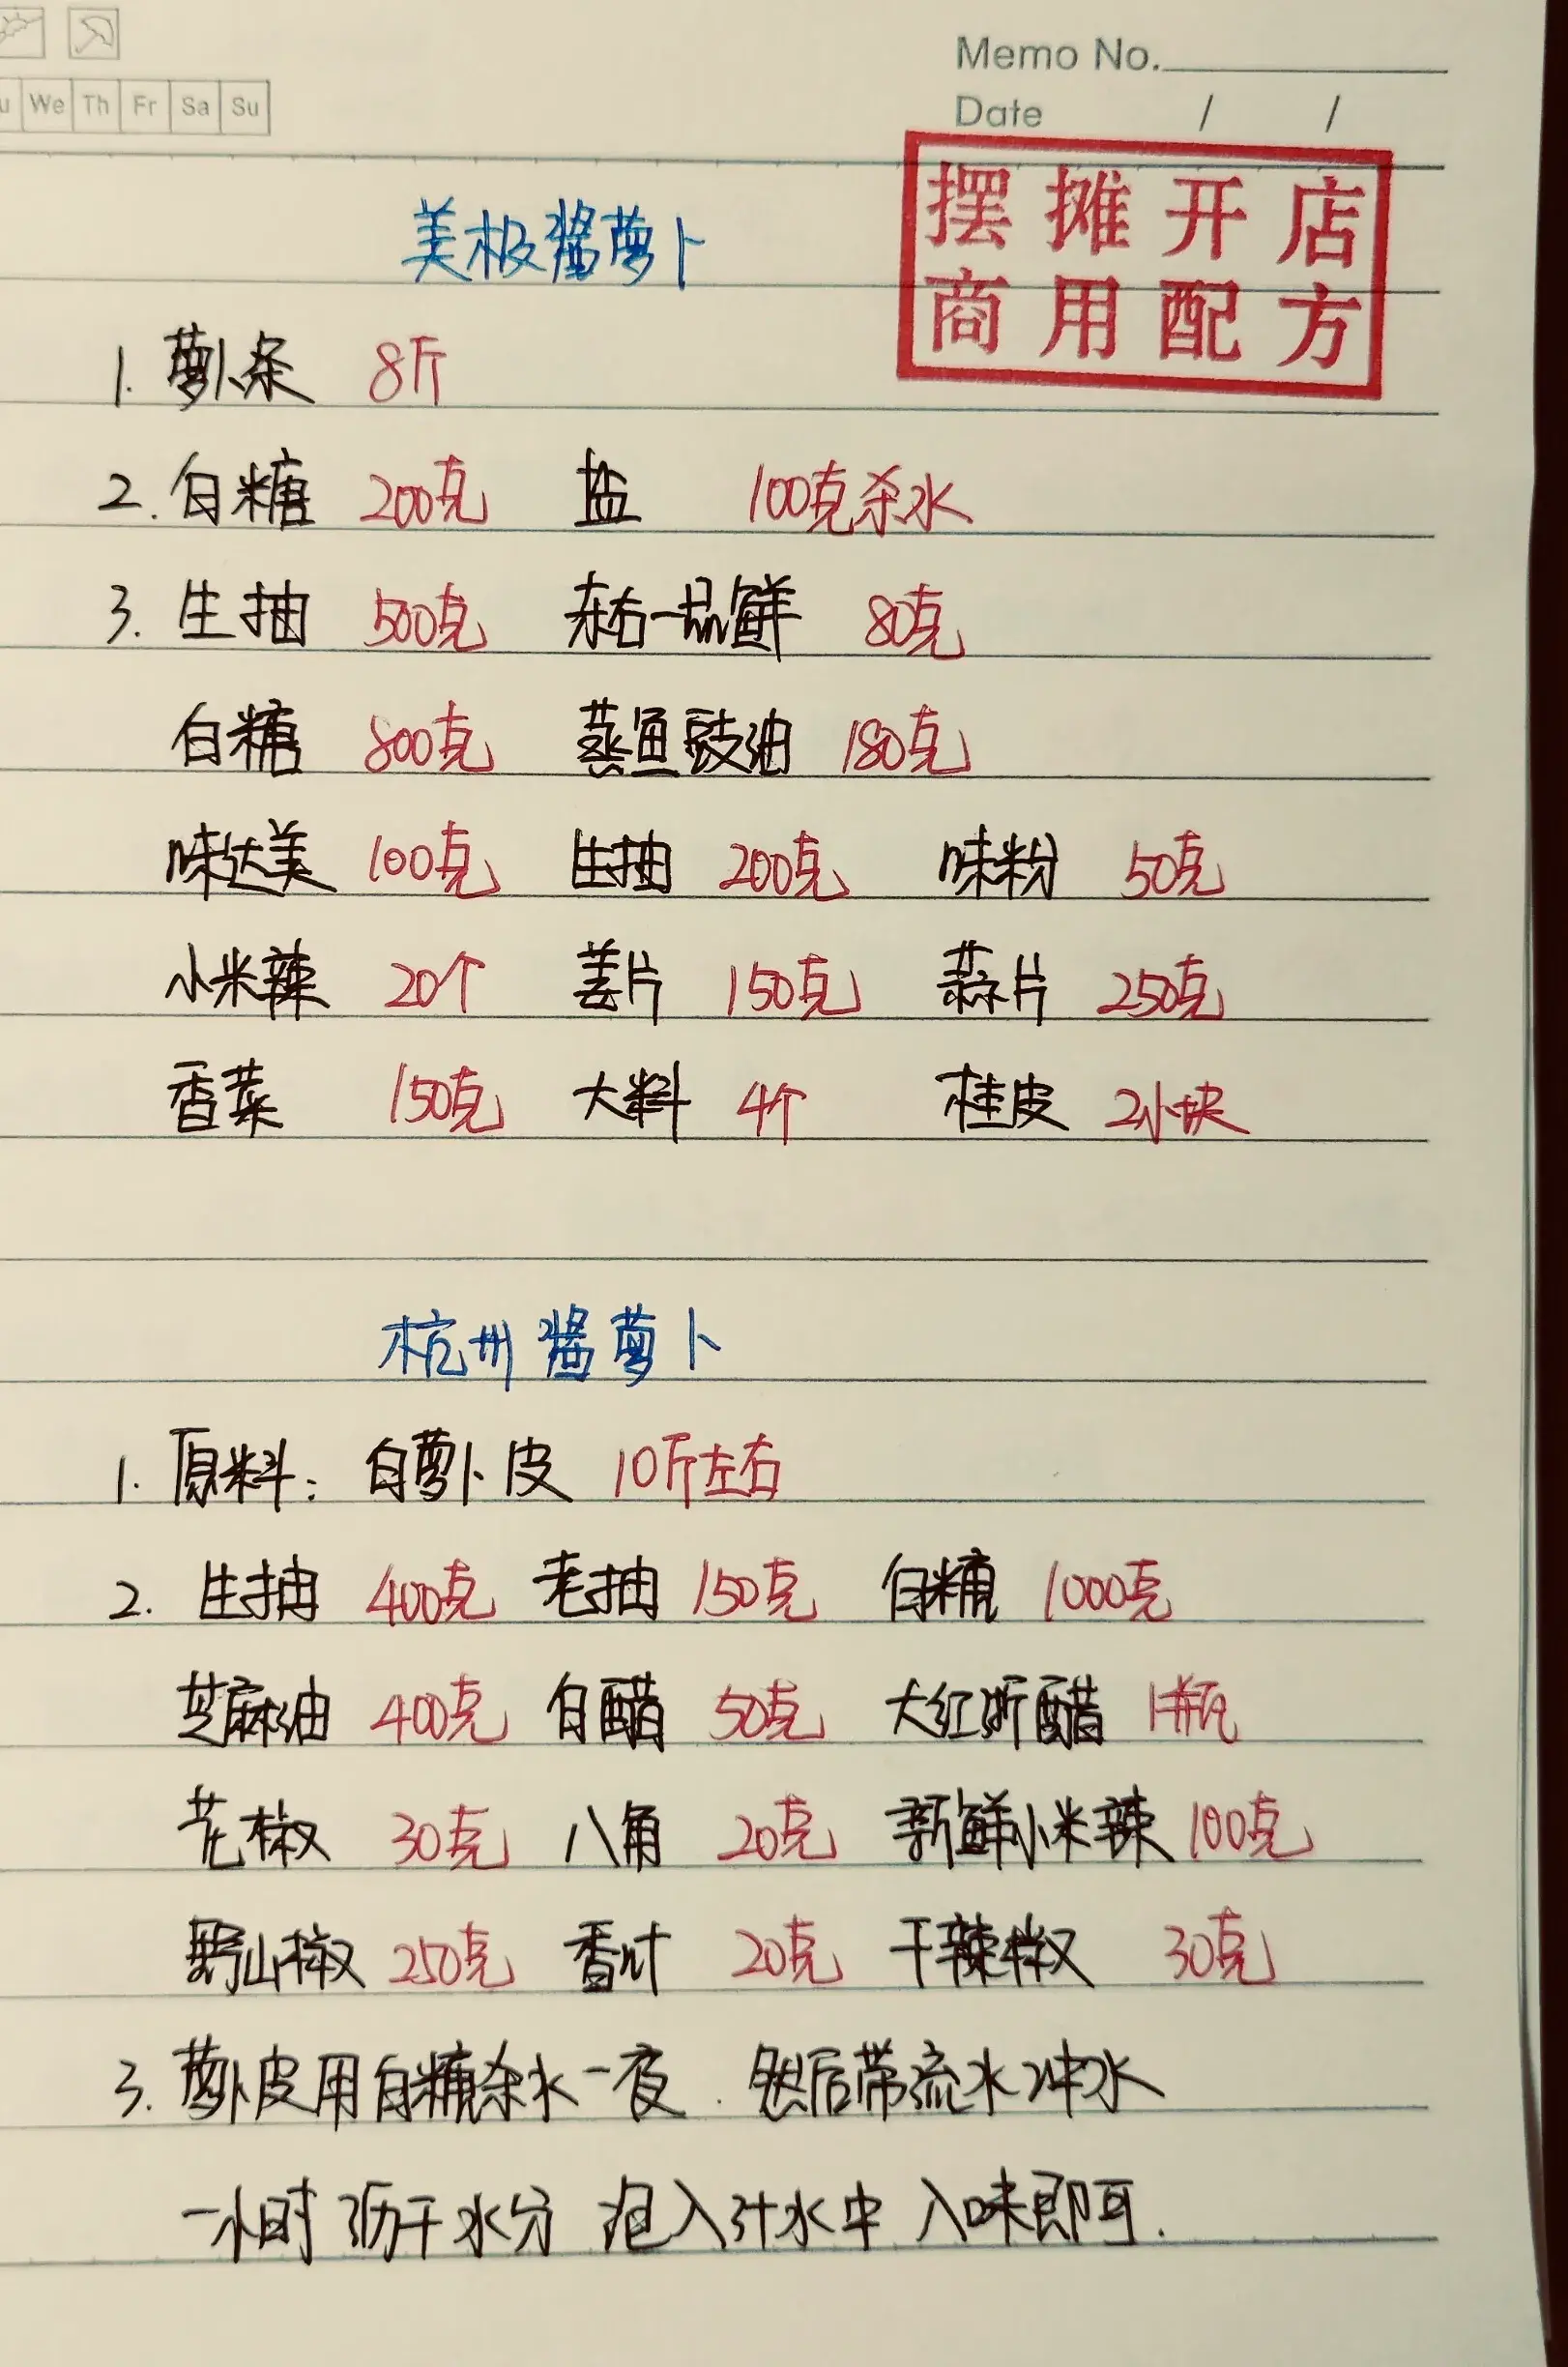 Memo No.
We Th Fr Sa Su
Date / /
摆摊开店
商用配方
美极酱萝卜
1. 萝卜条 8斤
2. 白糖 200克 盐 100克杀水
3. 生抽 500克 东古一品鲜 80克
白糖 800克 蒸鱼豉油 180克
味达美 100克 生抽 200克 味粉 50克
小米辣 20个 姜片 150克 蒜片 250克
香菜 150克 大料 4个 桂皮 2小块
杭州酱萝卜
1. 原料: 白萝卜皮 10斤左右
2. 生抽 400克 老抽 150克 白糖 1000克
芝麻油 400克 白醋 50克 大红浙醋 1瓶
花椒 30克 八角 20克 新鲜小米辣 100克
野山椒 250克 香叶 20克 干辣椒 30克
3. 萝卜皮用白糖杀水一夜. 然后带流水冲水
一小时 沥干水分 泡入汁水中 入味即可.